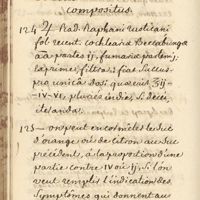 compositus.
124 ℞ Rad. Raphani rusticani
fol recent. cochleariæ Beccabungæ
aa partes ij. fumariæ partem j.
exprime, filtra; fiat succus
pro una dosi quæratur ℥ij
IV-VI, pluries in die, si deci,
detanda.
125 — on peut en cor mêler le suc
d'orange ou de citron au suc
précédent, à la proportion d'une
partie contre IV ou ij. Si l'on
veut remplir l'indication des
symptômes qui donnent au